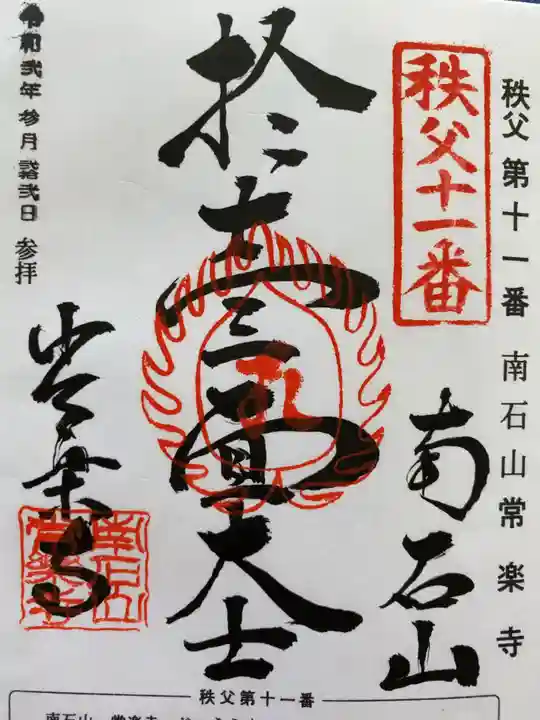 秩父第十一番 南石山常楽寺
秩父十一番
南石山
面大士
常楽寺
令和弐年参月弐日 参拝
南石山
常楽寺
秩父第十一番
南石山 常楽寺